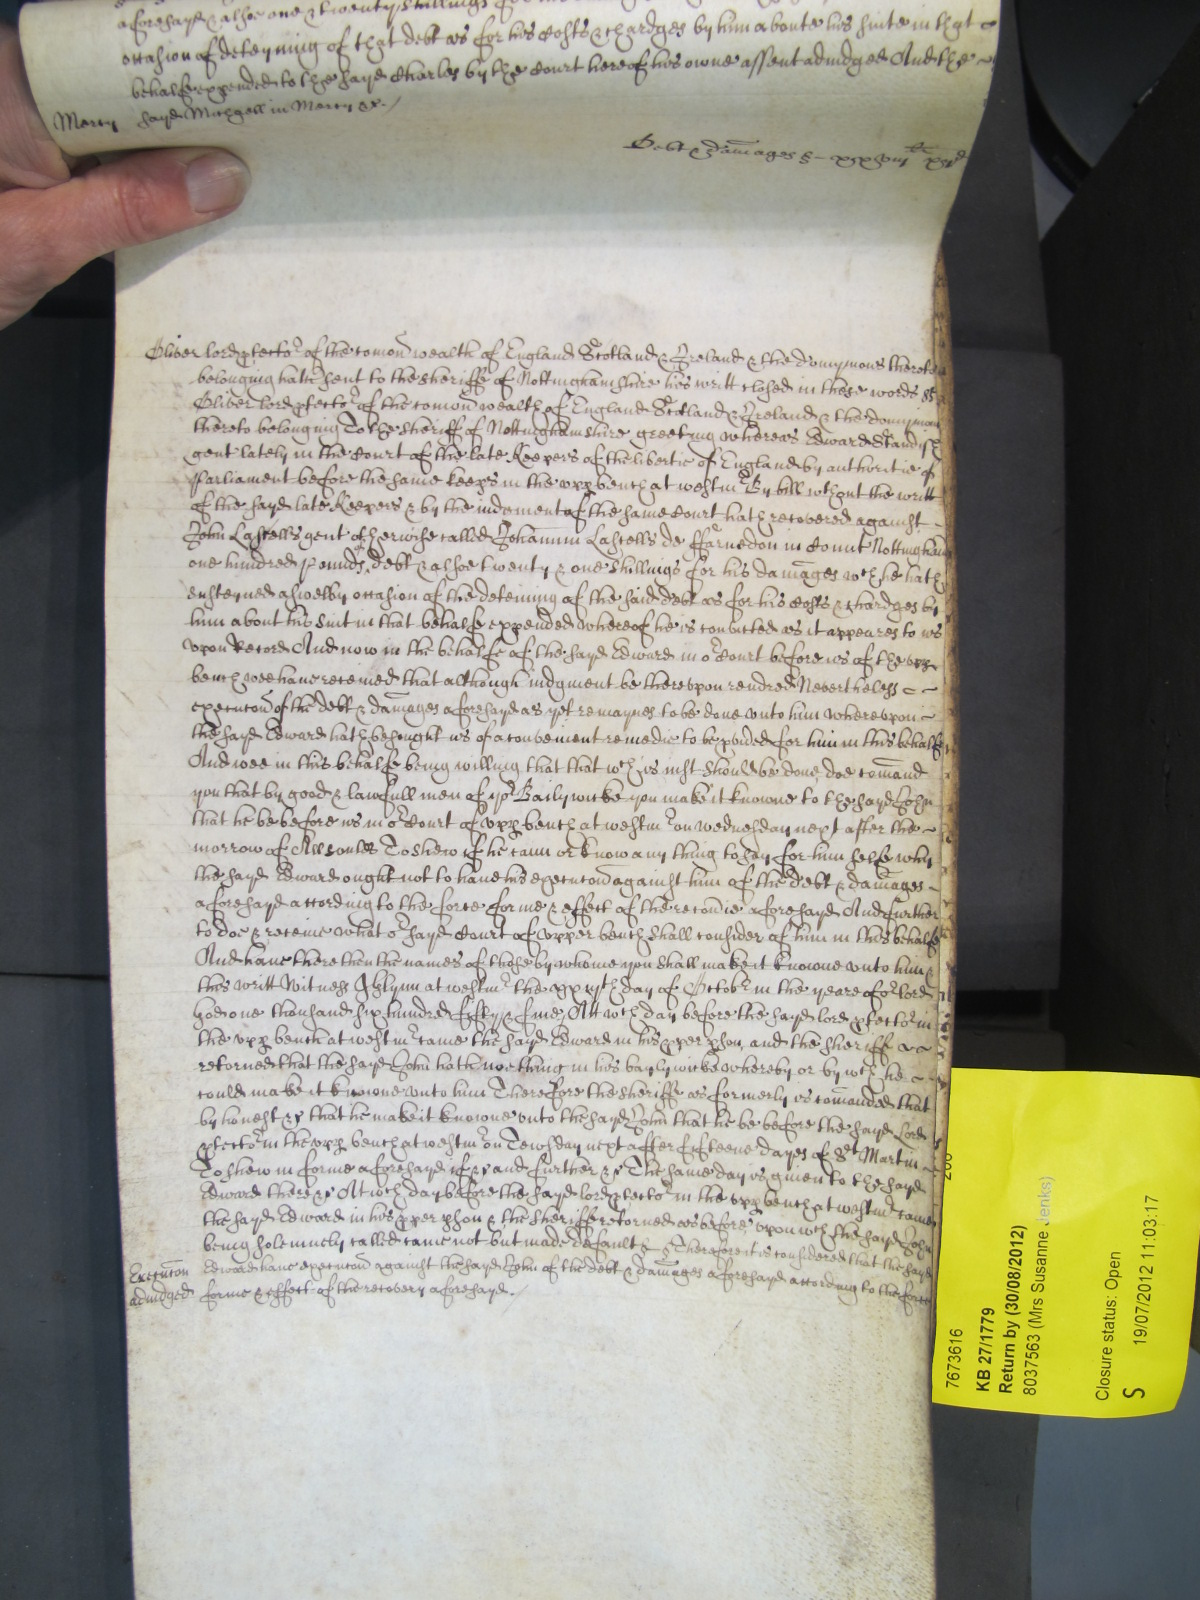 aforesayd & alsoe one & twenty shillings for
occasion of deteyning of that debt as for his Costs & chardges by him aboute his suite in that
behalfe expended to the sayd Charles by the Court here of his owne assent adiudged And the
Mercy sayd Mitchell in Mercy &c.
Debt & damages
Oliver lord ptector of the comon wealth of England Scotland & Ireland & the domynions thereto
belonging hath sent to the sheriffe of Nottinghamshire his writt closed in these words ss
Oliver lord ptector of the comon wealth of England Scotland & Ireland & the domynions
thereto belonging To the sheriff of Nottinghamshire greeting whereas Edward
gent lately in the Court of the late Keepers of the libertie of England by authoritie of
Parliament before the same keeps in the upp bench at westmr By bill wthout the writt
of the sayd late Keepers & by the iudgment of the same Court hath recovered against
John Lassells gent otherwise called Johannim Lassells de ffarnedon in Comit Nottingham
one hundred pounds debt & alsoe twenty & one shillings for his damages wch he hath
susteyned aswell by occasion of the deteining of the said debt as for his Costs & chardges by
him about his suit in that behalfe expended whereof he is convicted as it appeares to us
upon Record And now in the behalfe of the sayd Edward in or Court before us of the upp
bench wee have received that although iudgment be thereupon rendred Nevertheless
execucon of the debt & damages aforesayd as yet remaynes to be done unto him whereupon
the sayd Edward hath besought us of a convenient remedie to be pvided for him in this behalfe
And wee in this behalfe being willing that that wch is iust should be done doe comand
you that by good & lawfull men of yor Bailywicke you make it knowne to the sayd John
that he be before us in or Court of upp bench at westmr on wednesday next after the
morrow of All soules To shew if he cann or know any thing to say for him selfe why
the sayd Edward ought not to have his execucon against him of the debt & damages
aforesayd according to the force forme & effect of the recovie aforesayd And further
to doe & receive what or sayd Court of upper bench shall consider of him in this behalfe
And have there then the names of those by whome you shall make it knowne unto him &
this writt Witnes Glynn at westmr the day of Octobr in the yeare of or lord
god one thousand six hundred fifty & five, Att wch day before the sayd lord ptector in
the upp bench at westmr came the sayd Edward in his pper pson, and the sheriffe
returned that the sayd John hath noething in his baylywicke whereby or by wch he
could make it knowne unto him Therefore the sheriffe as formerly is comanded that
by honest &c that he make it knowne unto the sayd John that he be before the sayd Lord
ptector in the upp bench at westmr on Tewsday next after fifteene dayes of St Martin
To shew in forme aforesayd if &c and further &c The same day is given to the sayd
Edward there &c At wch day before the sayd lord ptector in the upp bench at westmr came
the sayd Edward in his pper pson & the sheriffe returned as before, upon wch the sayd John
being solemnely called came not but made default Therefore it is considered that the sayd
Execucon Edward have execucon against the sayd John of the debt & damages aforesayd according to the force
adiudged forme & effect of the recovery aforesayd.
7673616
KB 27/1779
Return by (30/08/2012)
8037563 (Mrs Susanne Jenks)
Closure status: Open
S 19/07/2012 11:03:17